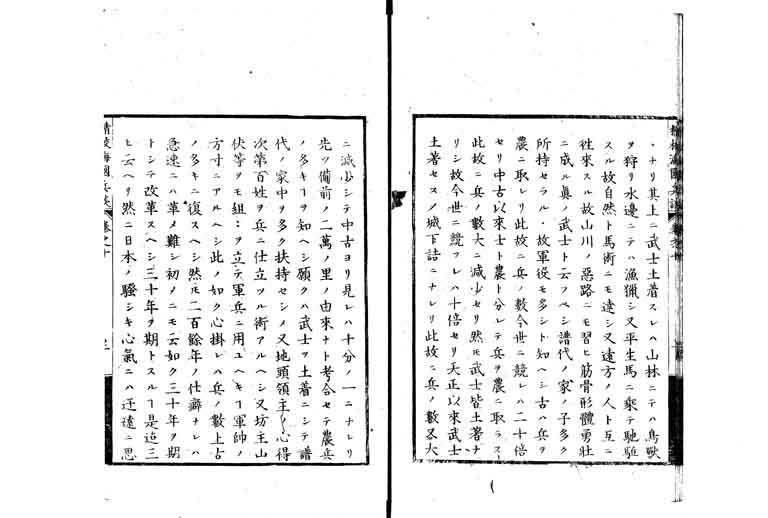 ヽナリ其上ニ武士土着スレハ山林ニテハ鳥獣
ヲ狩リ水邊ニテハ漁獵シ又平生馬ニ乗テ馳駈
スル故自然ト馬術ニモ達シ又遠方ノ人ト互ニ
徃來スル故山川ノ惡路ニモ習ヒ筋骨形體勇壮
ニ成ル眞ノ武士ト云フヘシ譜代ノ家ノ子多ク
所持セラルヽ故軍役モ多シト知ヘシ古ハ兵ヲ
農ニ取レリ此故ニ兵ノ數今世ニ競レハ二十倍
セリ中古以來士ト農ト分レテ兵ヲ農ニ取ラス
此故ニ兵ノ數大ニ減少セリ然モ武士皆土著ナ
リシ故今世ニ競フレハ十倍セリ天正以來武士
土著セスノ城下詰ニナレリ此故ニ兵ノ數又大
ニ減少シテ中古ヨリ見レハ十分ノ一ニナレリ
先ツ備前ノ二萬ノ里ノ由來ナト考合セテ農兵
ノ多キヿヲ知ヘシ願クハ武士ヲ土著ニシテ譜
代ノ家中ヲ多ク扶持セシメ又地頭領主ノ心得
次第百姓ヲ兵ニ仕立ツル術アルヘシ又坊主山
伏等ヲモ組ヲ立テ軍兵ニ用ユヘキヿ軍師ノ
方寸ニアルヘシ此ノ如ク心掛レハ兵ノ數上古
ノ多キニ復スヘシ然モ二百餘年ノ仕癖ナレハ
急速ニハ革メ難シ初メニモ云如ク三十年ヲ期
トシテ改革スヘシ三十年ヲ期トスルヿ是迄三
ヒ云ヘリ然ニ日本ノ騒シキ心氣ニハ迂遠ニ思
精校海國兵談 卷之十